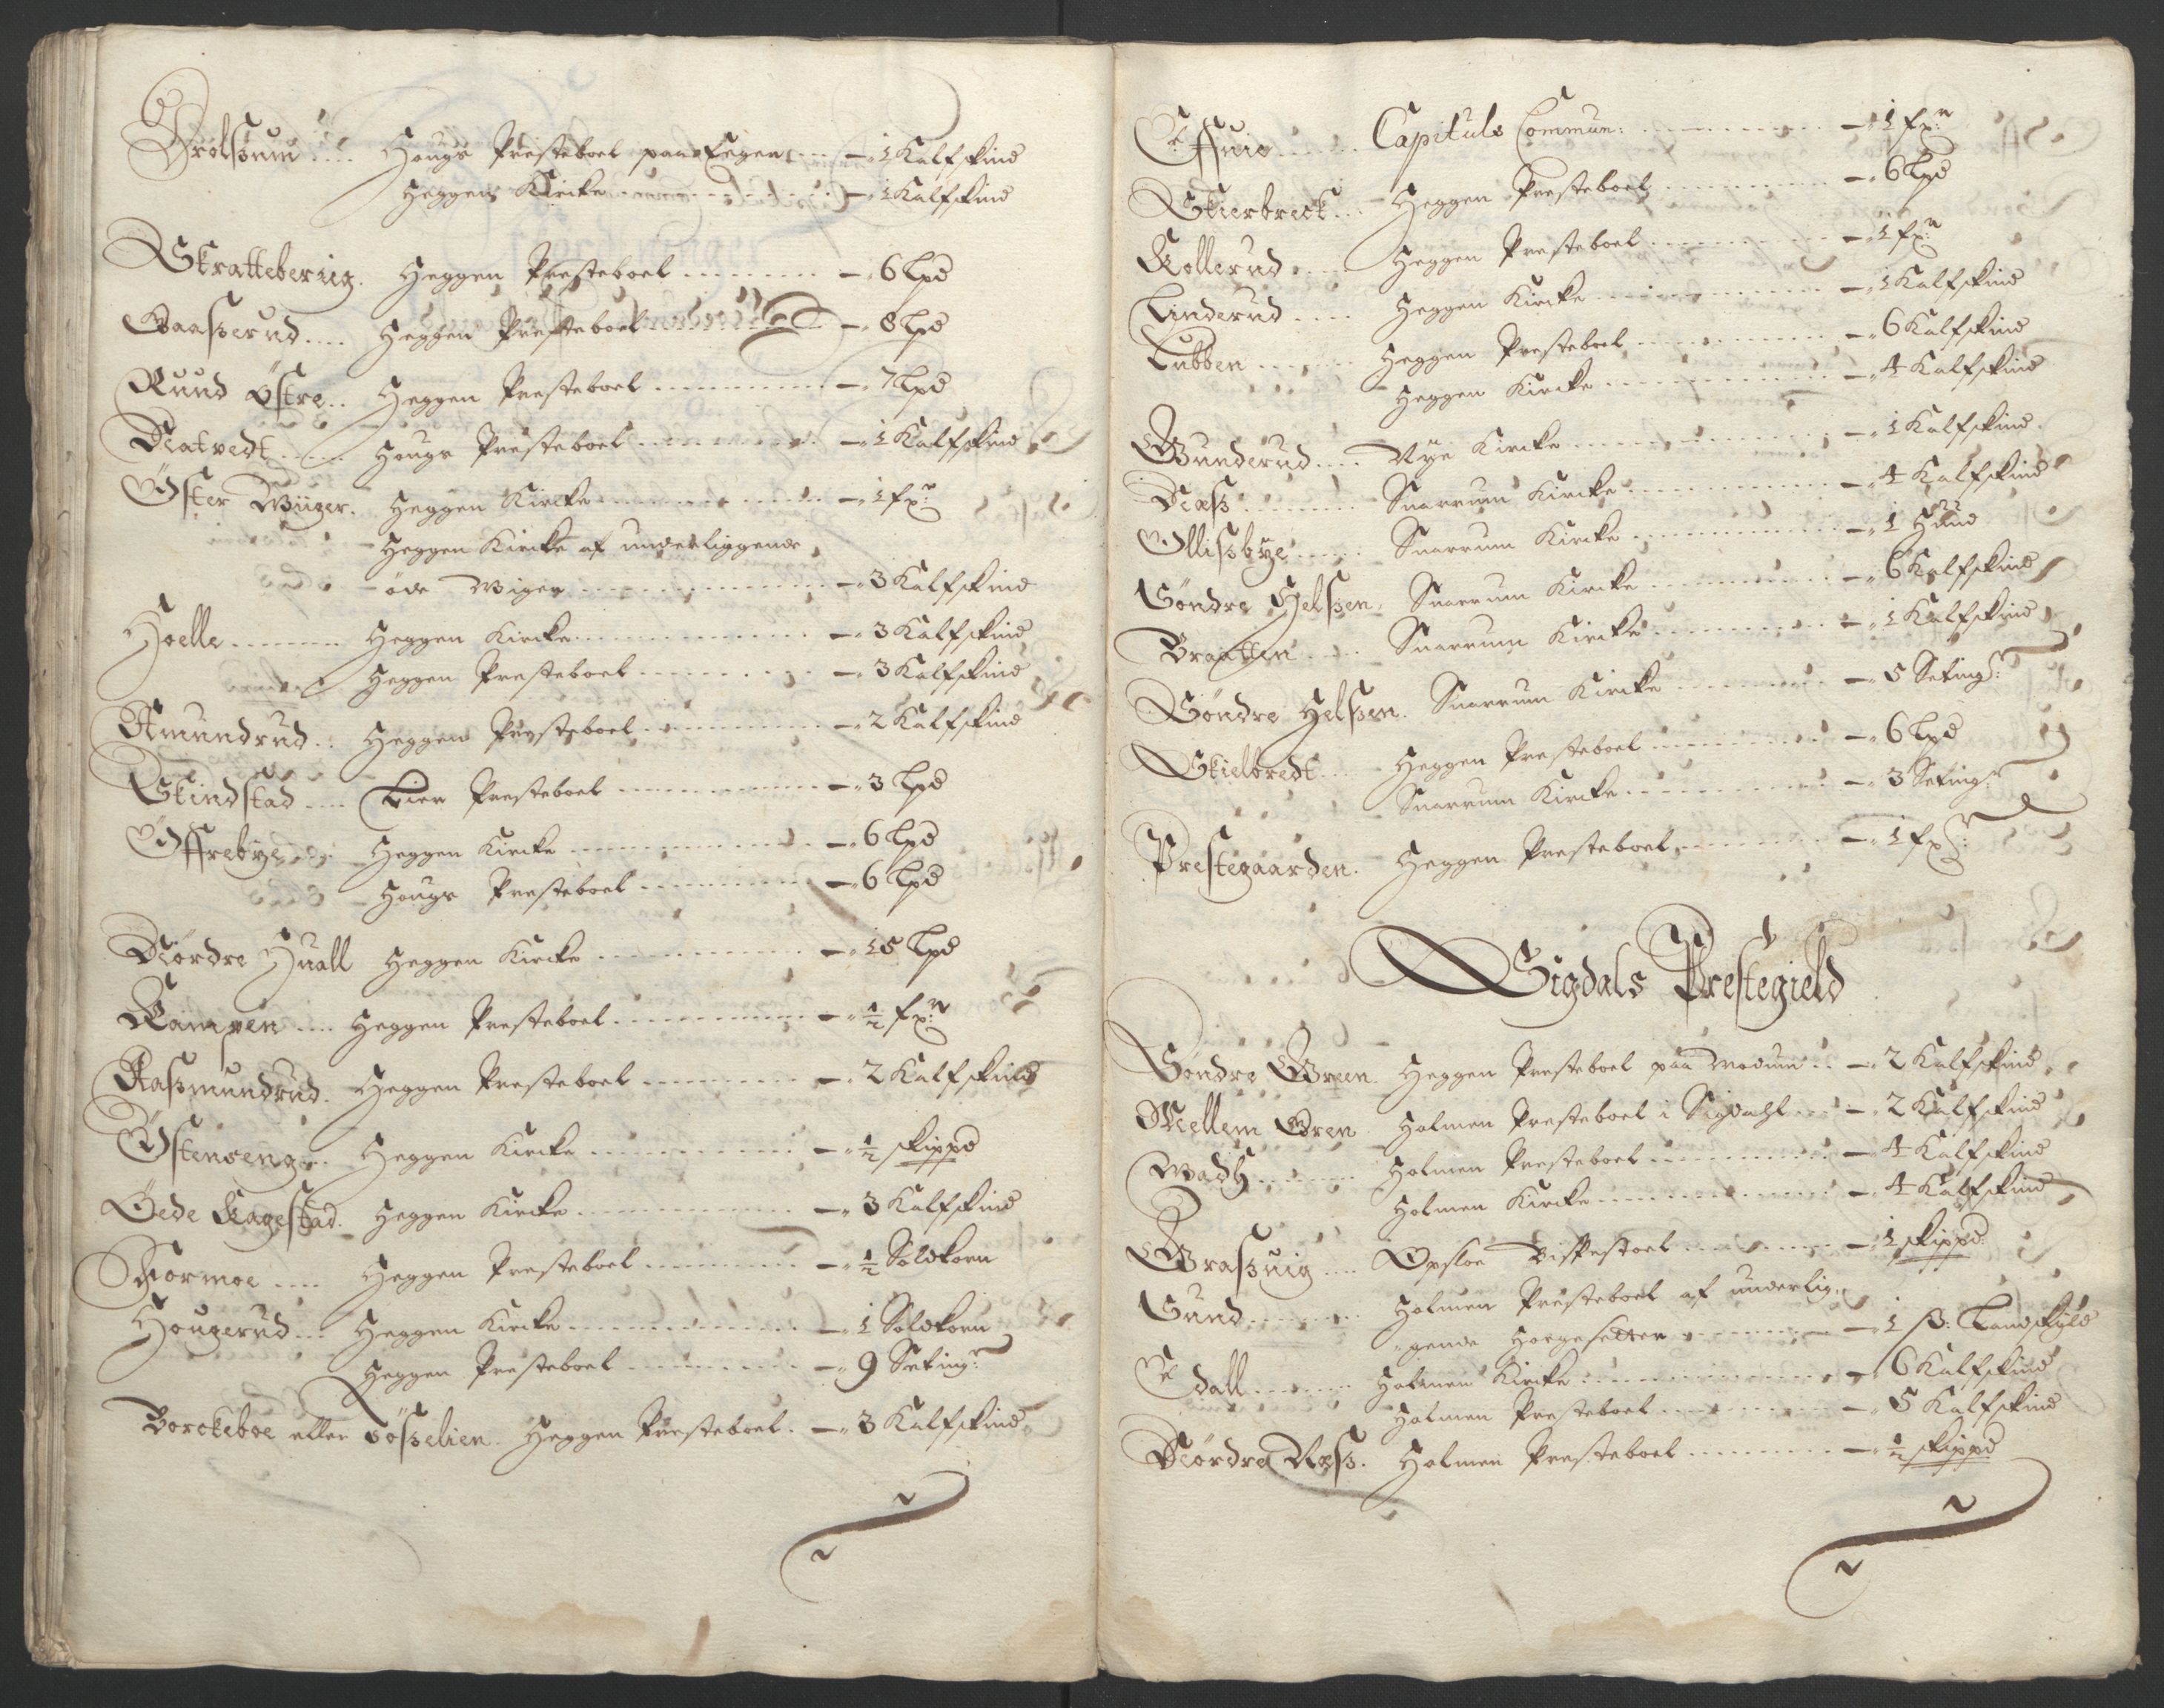 Drolsrum .... Hougs Presteboel paa Eegen .... – 1 Kalfskind
Heggens Kircke .... – 1 Kalfskind
Skratteberiig. Heggen Presteboel .... – 6 Lpd
Gaaserud .... Heggen Presteboel .... – 8 Lpd
Ruud Östre .. Heggen Presteboel .... – 7 Lpd
Natvedt .... Hougs Presteboel .... – 1 Kalfskind
Öster Wiiger. Heggen Kircke .... – 1 fx:
Heggen Kircke af underliggende
öde Wiger .... – 3 Kalfskind
Hoelle .... Heggen Kircke .... – 3 Kalfskind
Heggen Presteboel .... – 3 Kalfskind
Amundrud .. Heggen Presteboel .... – 2 Kalfskind
Skindstad .... Lier Presteboel .... – 3 Lpd
Offrebye .... Heggen Kircke .... – 6 Lpd
Hougs Presteboel .... – 6 Lpd
Nördre Huall Heggen Kircke .... – 15 Lpd
Kampen .... Heggen Presteboel .... – ½ fx:
Aasmundrud. Heggen Presteboel .... – 2 Kalfskind
Östenseng .. Heggen Kircke .... – ½ skippd
Öede Kagestad. Heggen Kircke .... – 3 Kalfskind
Normoe .... Heggen Presteboel .... – ½ Soldkorn
Hougerud ... Heggen Kircke .... – 1 Soldkorn
Heggen Presteboel .... – 9 Seting:
Borckeboe eller Lösselien. Heggen Presteboel. – 3 Kalfskind
Effuie .... Capituls Commun: .... – 1 fx:
Skierbreck ... Heggen Presteboel .... – 6 Lpd
Kollerud .... Heggen Presteboel .... – 1 fx:
Linderud .... Heggen Kircke .... – 1 Kalfskind
Lubben .... Heggen Presteboel .... – 6 Kalfskind
Heggen Kircke .... – 4 Kalfskind
Gunderud .... Nye Kircke .... – 1 Kalfskind
Næss .... Snarrum Kircke .... – 4 Kalfskind
Ollissbye .... Snarrum Kircke .... – 1 Huud
Söndre Helssen, Snarrum Kircke .... – 6 Kalfskind
Braatten .... Snarrum Kircke .... – 1 Kalfskind
Söndre Helssen. Snarrum Kircke .... – 5 Seting:
Skielbredt .... Heggen Presteboel .... – 6 Lpd
Snarrum Kircke .... – 3 Seting:
Prestegaarden. Heggen Presteboel .... – 1 fx:
Sigdals Prestegield
Söndre Green. Heggen Presteboel paa Modum .. – 2 Kalfskind
Mellem Green Holmen Presteboel i Sigdahl ... – 2 Kalfskind
Holmen Presteboel .... – 4 Kalfskind
Holmen Kircke .... – 4 Kalfskind
Grassuig .... Opsloe Bispestoel .... – 1 skippd
Sund .... Holmen Presteboel af underlig-
gende Horgesetter .... – 1 ß: Landskyld
Edall .... Holmen Kircke .... – 6 Kalfskind
Holmen Presteboel .... – 5 Kalfskind
Nördre Næss. Holmen Presteboel .... – ½ skippd